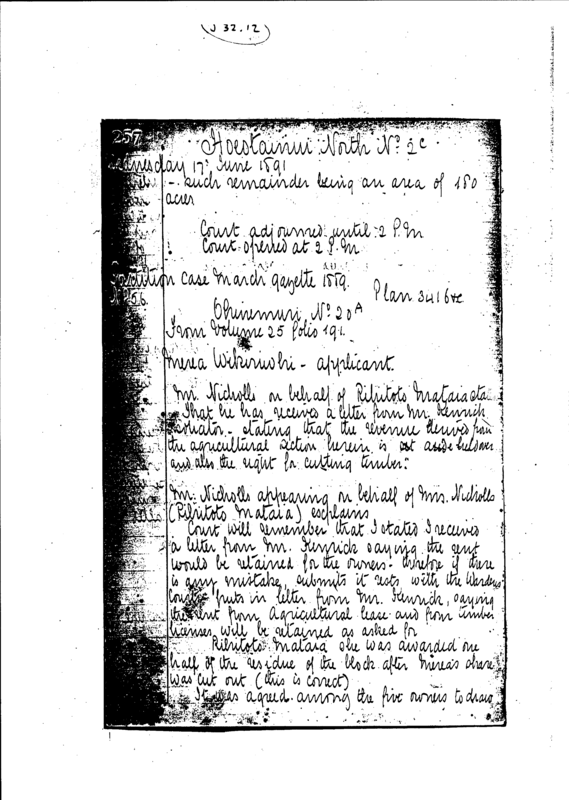 J 32.12
257
Hoestainui North No. 2c
Wednesday 17th June 1891
- such remainder being an area of 180
acres
Court adjourned until 2 P.M
Court opened at 2 P.M
case March gazette 1889.
Plan 3416
Ohinemuri, No. 20A
From Volume 25 folio 191.
Merea Wikiriwhi - applicant.
Mr. Nicholls on behalf of Ripitoto Mataia
That he has received a letter from Mr. Kenrick
stating that the revenue derived from
the agricultural section herein is
and also the right for cutting timber.
Mr. Nicholls appearing on behalf of Mrs. Nicholls
(Ripitoto Mataia) explains
Court will remember that I stated I received
a letter from Mr. Kenrick saying the rent
would be retained for the owners. Therefore if there
is any mistake, submits it rests with the Wardens
Court - puts in letter from Mr. Kenrick, saying
the rent from Agricultural lease and from timber
licenses will be retained as asked for
Ripitoto Mataia she was awarded one
half of the residue of the block after Merea's share
was cut out (this is correct)
It was agreed among the five owners to draw